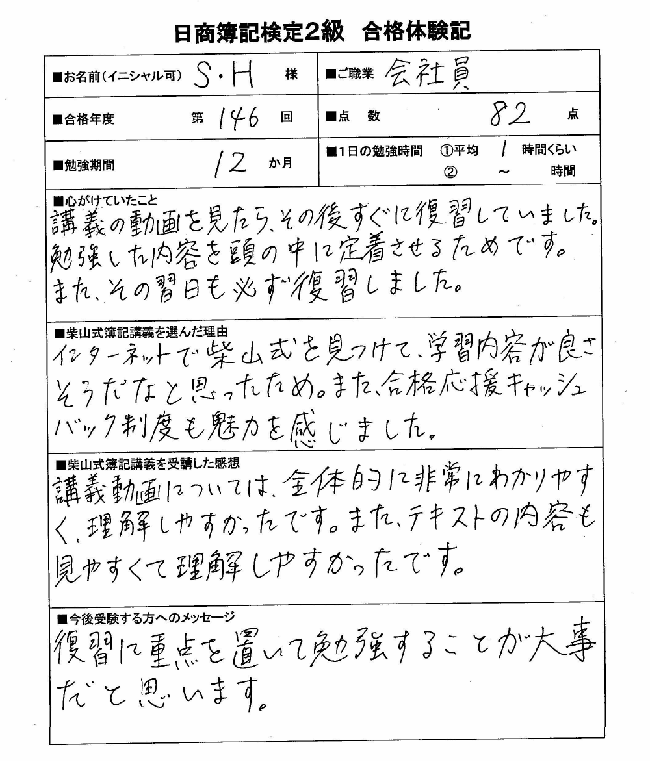 日商簿記検定2級 合格体験記
■お名前(イニシャル可) S・H 様 ■ご職業 会社員
■合格年度 第 146 回 ■点 数 82 点
■勉強期間 12 か月 ■1日の勉強時間 ①平均 1 時間くらい
② ~ 時間
■心がけていたこと
講義の動画を見たら、その後すぐに復習していました。
勉強した内容を頭の中に定着させるためです。
また、その習日も必ず復習しました。
■柴山式簿記講義を選んだ理由
インターネットで柴山式を見つけて、学習内容が良さ
そうだなと思ったため。また、合格応援キャッシュ
バック制度も魅力を感じました。
■柴山式簿記講義を受講した感想
講義動画については、全体的に非常にわかりやす
く、理解しやすかったです。また、テキストの内容も
見やすくて理解しやすかったです。
■今後受験する方へのメッセージ
復習に重点を置いて勉強することが大事
だと思います。